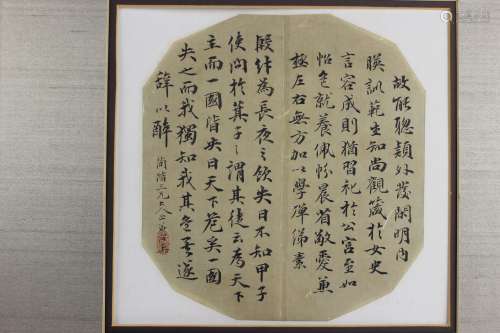 故能聰穎外發閑明內
暎訓範生知尚觀箴於女史
言容成則猶習祀於公宮至如
怡色就養佩帉晨省敬愛兼
極左右無方加以學殫綈素
殷紂為長夜之飲失日不知甲子
使問於箕子〻謂其徒云為天下
主而一國皆失日天下危矣一國
失之而我獨知我其危矣遂
辭以醉
階三兄大人正